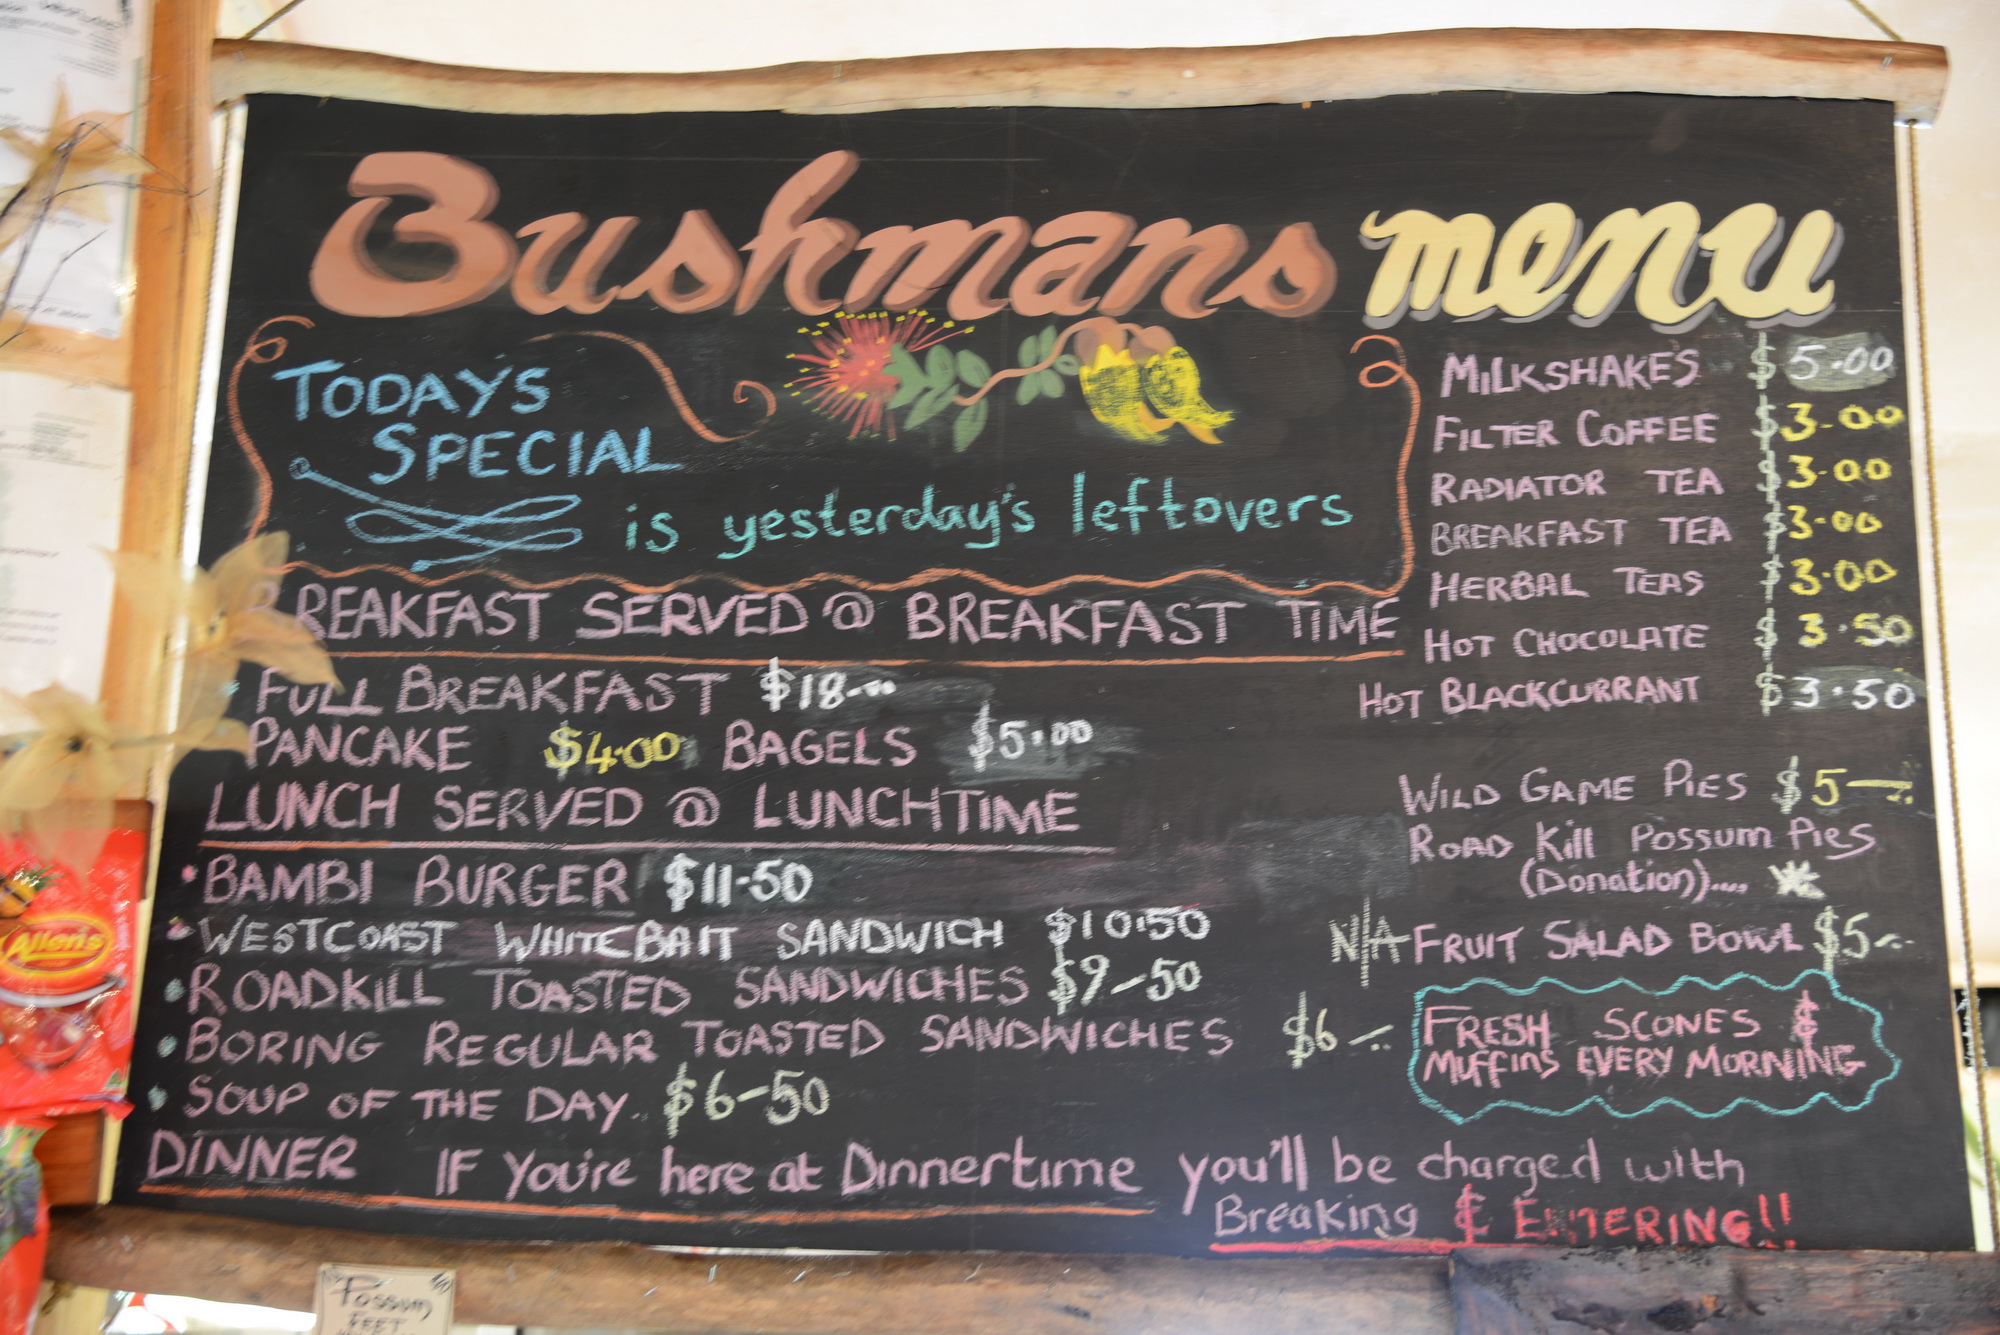 Bushmans menu
TODAY'S
SPECIAL
is yesterday's leftovers
BREAKFAST SERVED @ BREAKFAST TIME
FULL BREAKFAST $18-00
PANCAKE $4.00 BAGELS $5.00
LUNCH SERVED @ LUNCHTIME
• BAMBI BURGER $11-50
• WESTCOAST WHITEBAIT SANDWICH $10.50
• ROADKILL TOASTED SANDWICHES $9-50
• BORING REGULAR TOASTED SANDWICHES $6-
• SOUP OF THE DAY.. $6-50
DINNER IF You're here at Dinnertime you'll be charged with
Breaking & ENTERING!!
MILKSHAKE'S $5.00
FILTER COFFEE $3.00
RADIATOR TEA $3.00
BREAKFAST TEA $3.00
HERBAL TEAS $3.00
HOT CHOCOLATE $3.50
HOT BLACKCURRANT $3.50
WILD GAME PIES $5-
ROAD Kill Possum Pies
(Donation)....
N/A FRUIT SALAD BOWL $5-
FRESH SCONES &
MUFFINS EVERY MORNING
Allen's
Possum
FEET